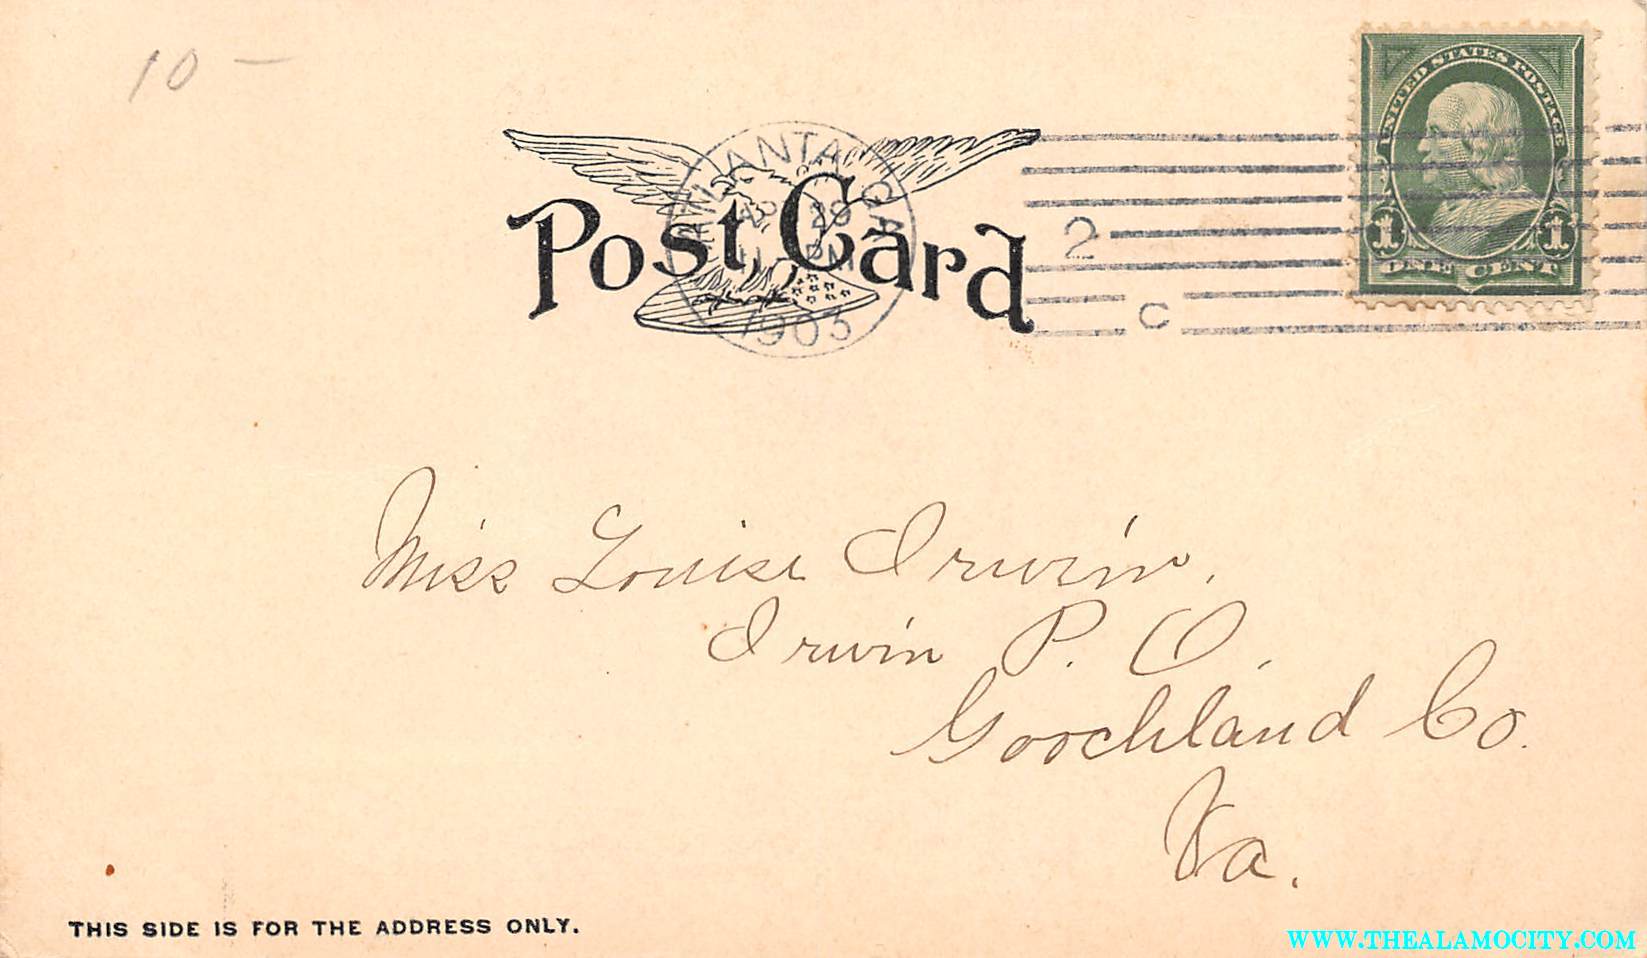 10 —
UNITED STATES POSTAGE
1 1
ONE CENT
ATLANTA, GA.
APR 29
PM
1903
2
C
Post Card
Miss Louise Irwin.
Irwin P. O.
Goochland Co.
Va.
THIS SIDE IS FOR THE ADDRESS ONLY.
WWW.THEALAMOCITY.COM